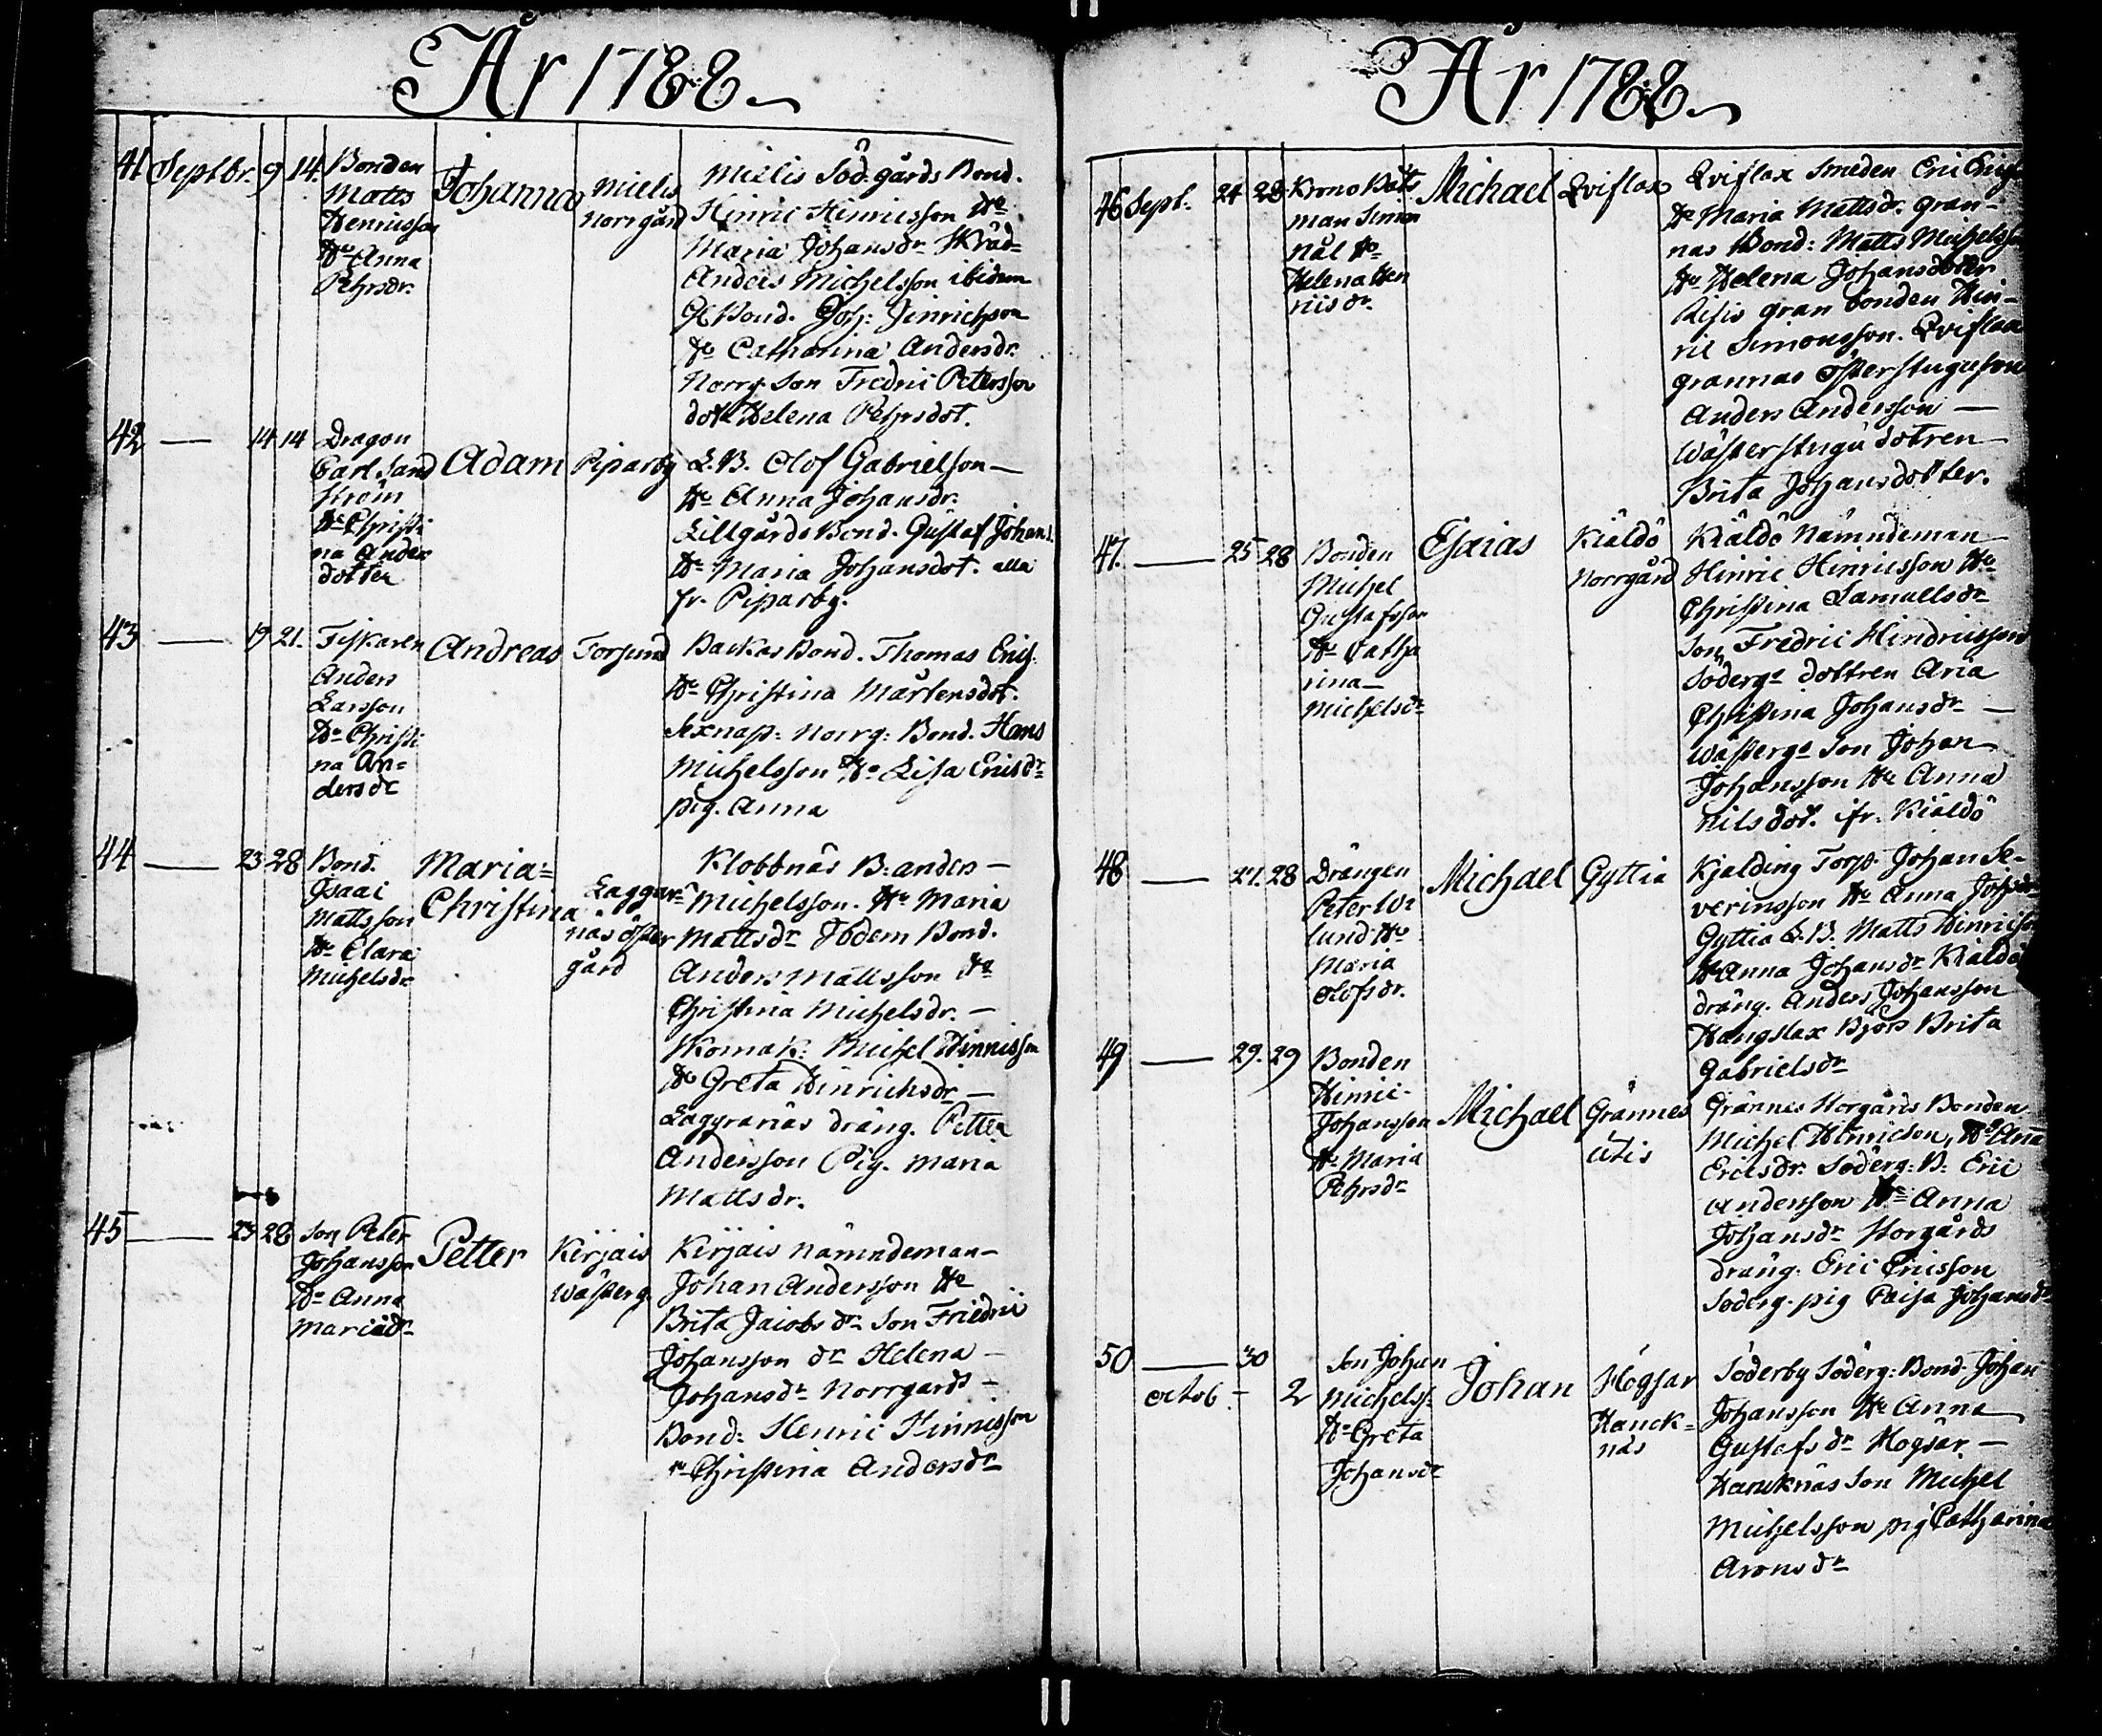 År 1788.
41 Septbr. 9 14. Bonden
Matts
Henricsson
Hu Anna
Pehrsdr.
Johanna
Mielis
Norrgård
Mielis Söd. gårds Bond.
Hinric Hinricsson Hu
Maria Johansdr. Skräd=
Anders Michelsson ibidem
Bond. Joh: Hinrichson
Hu Catharina Andersdr.
Norrg. Son Fredric Petersson
dotr Helena Pehrsdot.
42 — 14 14 Dragon
Carl Sand
ström
Hu Christi
na Anders
dotter
Adam
Piparby
L.B. Olof Gabrielsson —
Hu Anna Johansdr.
Lillgårds Bond. Gustaf Johans.
Hu Maria Johansdot. alla
fr. Piparby.
43 — 19 21. Fiskaren
Anders
Larsson
Hu Christi
na An=
dersdr
Andreas
Torsund
Backas Bond. Thomas Erics.
Hu Christina Mårtensdot.
Sexnap: Norrg: Bond. Hans
Michelsson Hu Lisa Ericsdr
pig. Anna
44 — 23 28 Bond.
Isaac
Mattsson
Hu Clara
Michelsdr
Maria=
Christina
Laggar=
näs Öster
gård
Klobbnäs B: Anders —
Michelsson. Hu Maria
Mattsdr Ibdem Bond.
Anders Mattsson Hu
Christina Michelsdr. —
Skomak: Michel Hinricsson
Hu Greta Hinrichsdr —
Laggranäs dräng. Petter
Andersson Pig. Maria
Mattsdr.
45 — 23 28 Son Peter
Johansson
Hu Anna
Mariædr
Petter
Kirjais
Wästerg.
Kirjais Nämndeman —
Johan Andersson Hu
Brita Jacobsdr Son Friedric
Johansson dr Helena —
Johansdr Norrgards —
Bond: Henric Hinricsson
Christina Andersdr
År 1788.
46 Sept. 24 28 Krono Båts
man Simon
Nål Hu
Helena Hen
ricsdr.
Michael
Qviflax
Qviflax Smeden Eric Erics
Hu Maria Mattsdr. gran —
nas Bond: Matts Michelsson
Hu Helena Johansdotter
Risis gran bonden Hin —
ric Simonsson. Qviflax
grannas Österstugu son
Anders Andersson —
Wästerstugu dotren —
Brita Johansdotter.
47. — 25 28 Bonden
Michel
Gustafsson
Hu Catha
rina —
Michelsdr
Esaias
Kiäldö
Norrgård
Kiäldö Nämndeman —
Hinric Hinricsson Hu
Christina Samuelsdr
Son Fredric Hindricsson
Söderga dottren Aria
Christina Johansdr —
Wästerga Son Johan —
Johansson Hu Anna
Nilsdot. ifr. Kiäldö
48 — 27. 28 Drängen
Peter Wi
lund Hu
Maria
Olofsdr.
Michael
Gyttia
Kjalding Torp. Johan Se-
verinsson Hu Anna Johsdr
Gyttia L.B. Matts Hinricsson
Hu Anna Johansdr Kiäldö
dräng. Anders Johansson
Hangslax Björs Brita
Gabrielsdr
49 — 29. 29 Bonden
Hinric
Johansson
Hu Maria
Pehrsdr
Michael
Grännes
Utis
Grännes Norgårds Bonden
Michel Hinricson, Hu Anna
Ericsdr. Söderg: B: Eric
Andersson Hu Anna
Johansdr Norgårds
dräng. Eric Ericsson
Söderg. pig Caisa Johansdr
50 — 30
Octob. — 2
Son Johan
Michelss:
Hu Greta
Johansdr
Johan
Högsar
Hanck=
näs
Söderby Söderg: Bond. Johan
Johansson Hu Anna
Gustafsdr Högsar —
Hancknäs Son Michel
Michelsson pig Catharina
Aronsdr